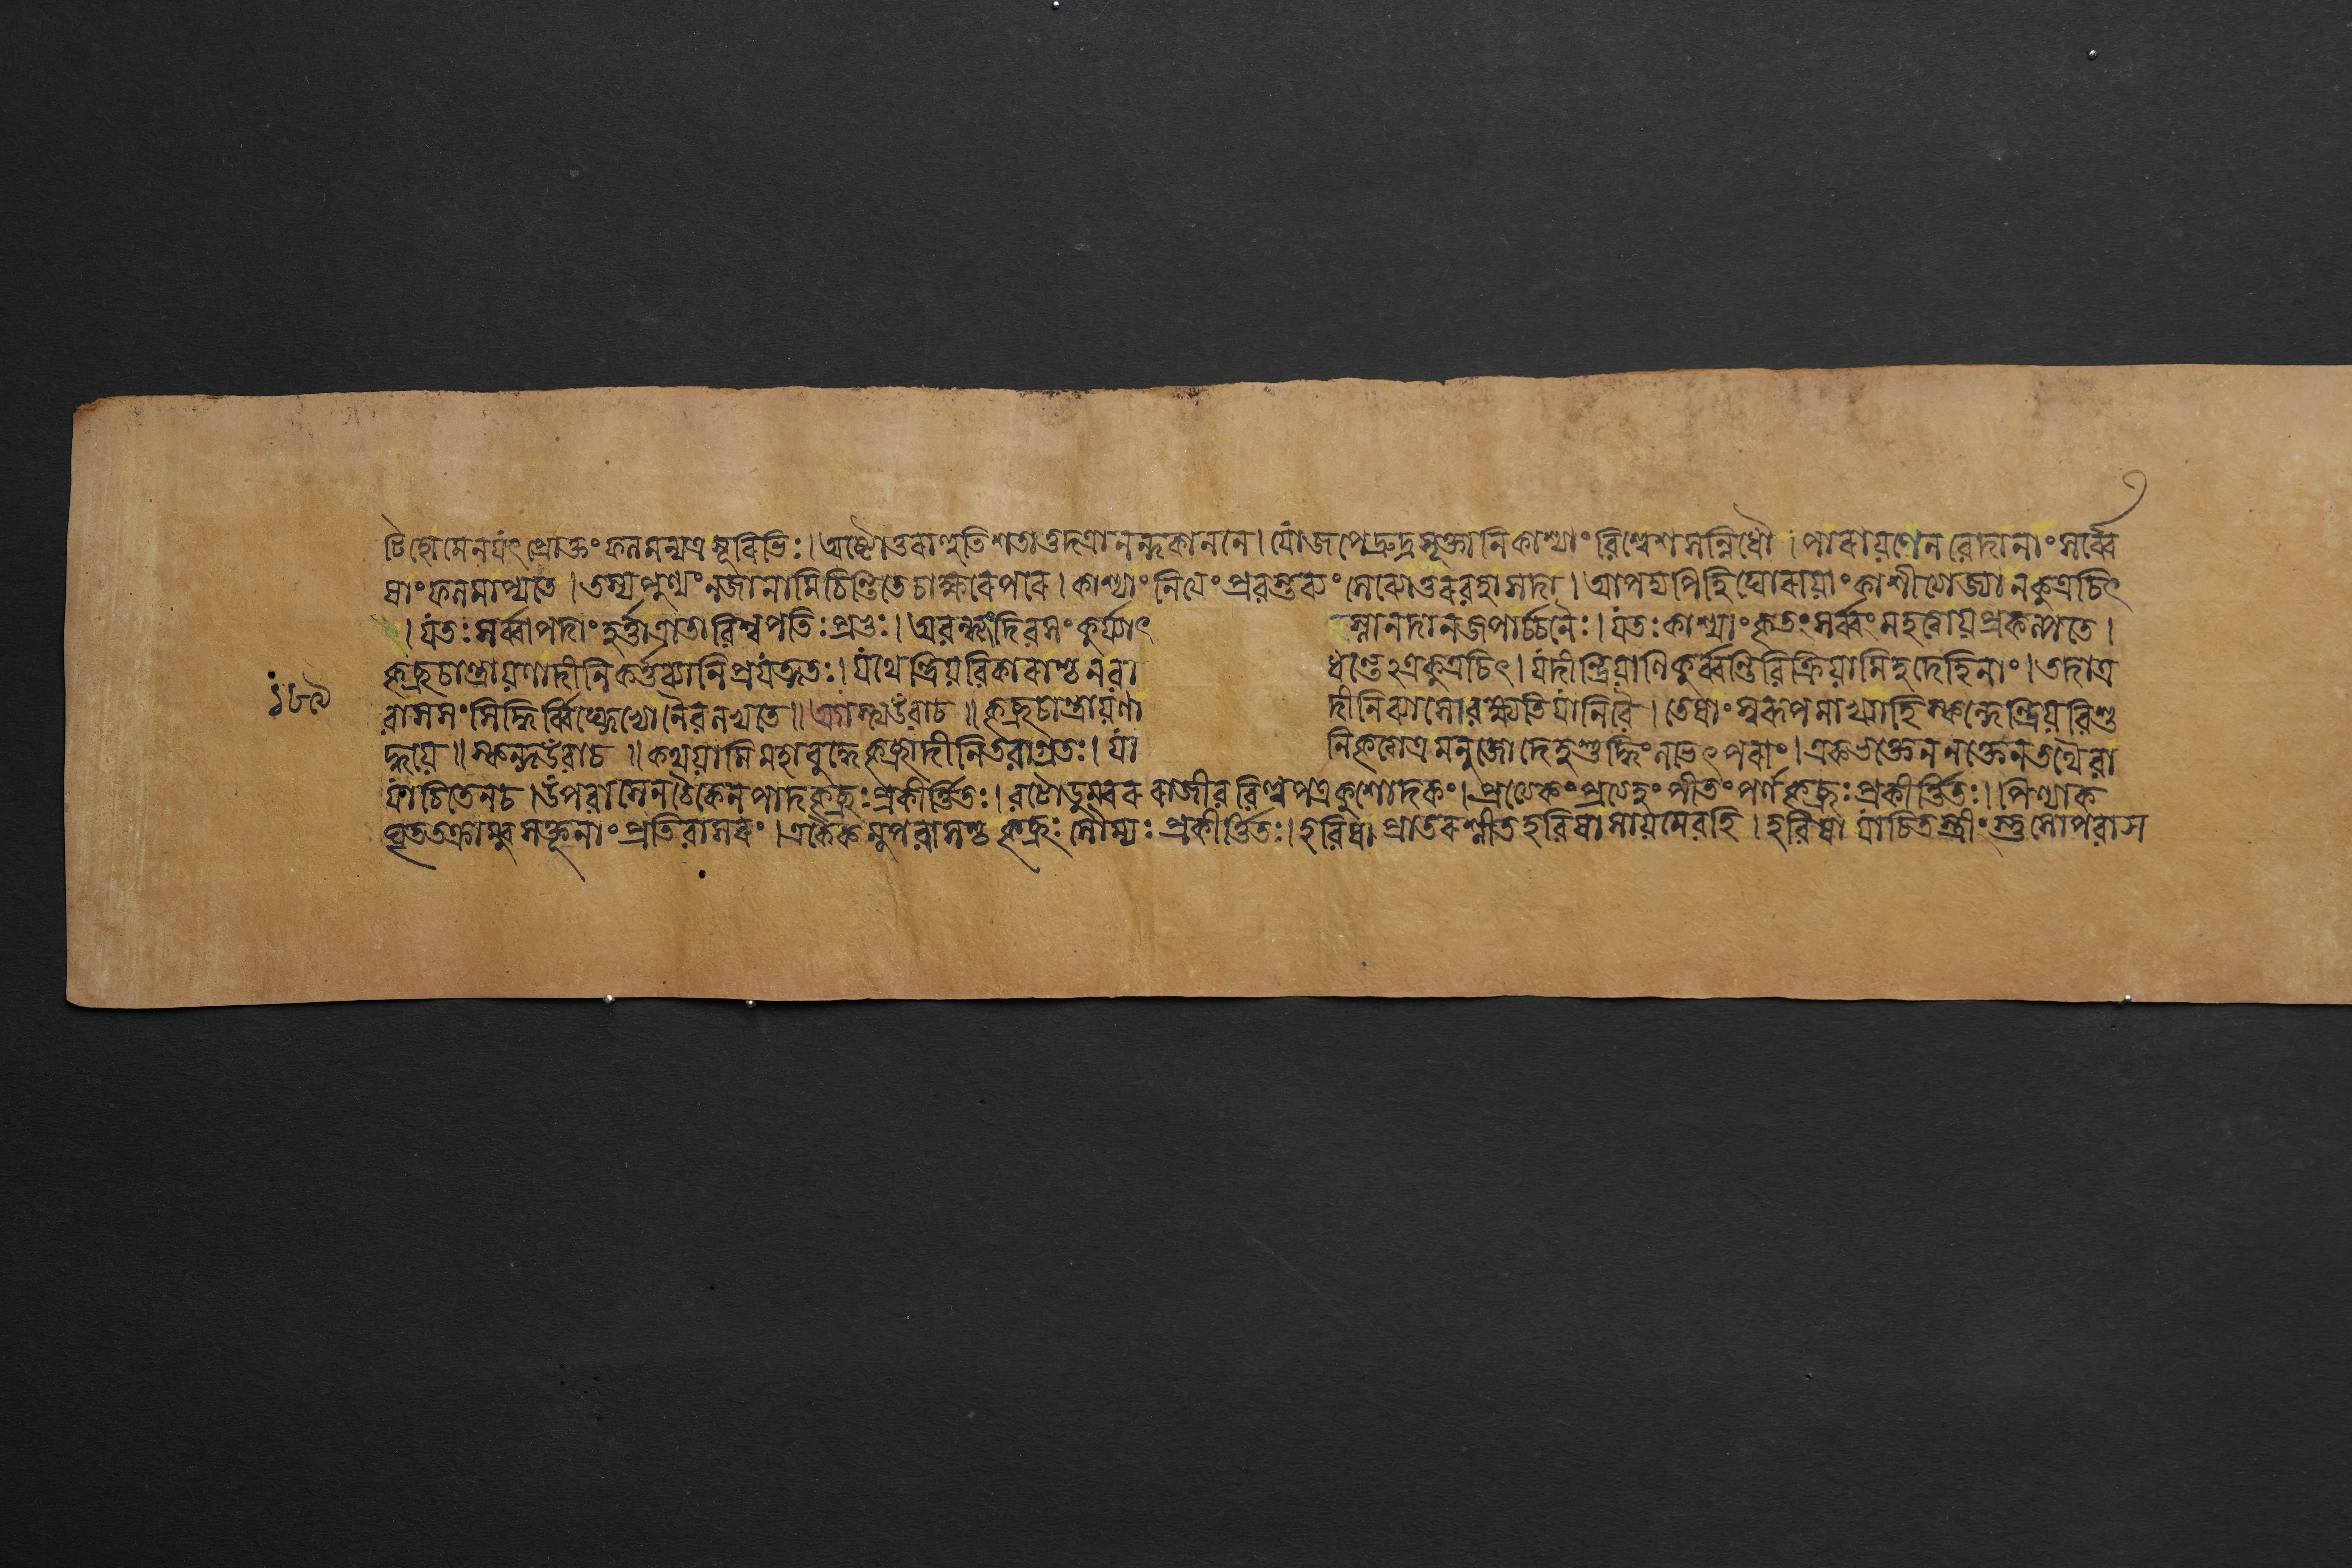 টিহোমেনযৎ প্রোক্তং ফলমন্যত্র সূরিভিঃ। অষ্টোত্তরাণ্হুতিশতাত্তদত্রানন্দকাননে। যো জপেদ্রুদ্রসূক্তানি কাশ্যাং বিশ্বেশসন্নিধৌ। পারায়ণেন বেদানাং সর্ব্বে
ষাং ফলমাপ্যতে। তস্য পুণ্যং ন জানামি চিন্তিতে চাক্ষরে পরে। কাশ্যাং নিত্যং প্রবস্তব্যং সেব্যোত্তরবহা সদা। আপদ্যপি হি ঘোরায়াং কাশী ত্যাজ্যা ন কুত্রচিৎ
। যতঃ সর্ব্বাপদাং হর্ত্তা ত্রাতা বিশ্বপতিঃ প্রভুঃ। অবন্ধ্যং দিবসং কুর্য্যাৎ স্নানদানজপার্চ্চনৈঃ। যতঃ কাশ্যাং কৃতং সর্ব্বং মহত্ত্বায় প্রকল্পতে।
কৃচ্ছ্রচান্দ্রায়ণাদীনি কর্ত্তব্যানি প্রযত্নতঃ। যথেন্দ্রিয়বিকারাশ্চ ন বা ধন্তেঽত্র কুত্রচিৎ। যদীন্দ্রিয়াণি কুর্ব্বন্তি বিক্রিয়ামিহ দেহিনাং। তদাত্র
বাসসংসিদ্ধির্ব্বিঘ্নেভ্যো নৈব লভ্যতে॥ অগস্ত্য উবাচ॥ কৃচ্ছ্রচান্দ্রায়ণা দীনি ব্যাসো বক্ষ্যতি যানি বৈ। তেষাং স্বরূপমাখ্যাহি স্কন্দেন্দ্রিয়বিশু
দ্ধয়ে॥ স্কন্দ উবাচ॥ কথয়ামি মহাবুদ্ধে কৃচ্ছ্রাদীনি তবাগ্রতঃ। যা নি কৃত্বাত্র মনুজো দেহশুদ্ধিং লভেৎ পরাং। একভক্তেন নক্তেন তথৈবা
যাচিতেন চ। উপবাসেন চৈকেন পাদকৃচ্ছ্রঃ প্রকীর্ত্তিতঃ। বটোডুম্বররাজীববিল্বপত্রকুশোদকং। প্রত্যেকং প্রত্যহং পীতং পর্ণকৃচ্ছ্রঃ প্রকীর্ত্তিতঃ। পিণ্যাক
ঘৃততক্রাম্বুসক্তূনাং প্রতিবাসরং। একৈকমুপবাসশ্চ কৃচ্ছ্রঃ সৌম্যঃ প্রকীর্ত্তিতঃ। হবিষা প্রাতরশ্নীত হবিষা সায়মেব হি। হবিষা যাচিতস্ত্রীং স্তু সোপবাস
১৮৯